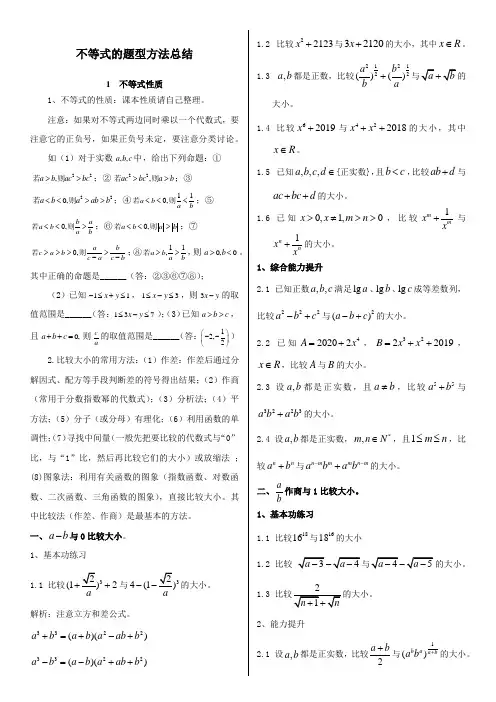 不等式的题型方法总结
1 不等式性质
1、不等式的性质：课本性质请自己整理。
注意：如果对不等式两边同时乘以一个代数式，要
注意它的正负号，如果正负号未定，要注意分类讨论。
如（1）对于实数a,b,c中，给出下列命题：①
若a>b,则ac²>bc²；② 若ac²>bc²,则a>b；③
若a<b<0,则a²>ab>b²；④若a<b<0,则1/a<1/b；⑤
若a<b<0,则b/a>a/b；⑥若a<b<0,则|a|>|b|；⑦
若c>a>b>0,则a/(c-a)>b/(c-b)；⑧若a>b,1/a>1/b，则 a>0,b<0。
其中正确的命题是______（答：②③⑥⑦⑧）；
（2）已知 -1≤x+y≤1，1≤x-y≤3，则3x-y的取
值范围是______（答：1≤3x-y≤7）；（3）已知a>b>c，
且 a+b+c=0, 则 c/a 的取值范围是______（答：(-2,-1/2)）
2.比较大小的常用方法：（1）作差：作差后通过分
解因式、配方等手段判断差的符号得出结果；（2）作商
（常用于分数指数幂的代数式）；（3）分析法；（4）平
方法；（5）分子（或分母）有理化；（6）利用函数的单
调性；（7）寻找中间量(一般先把要比较的代数式与“0”
比，与“1”比，然后再比较它们的大小）或放缩法 ；
(8)图象法：利用有关函数的图象（指数函数、对数函
数、二次函数、三角函数的图象），直接比较大小。其
中比较法（作差、作商）是最基本的方法。
一、a-b与0比较大小。
1、基本功练习
1.1 比较(1+√2/a)³+2与4-(1-√2/a)³的大小。
解析：注意立方和差公式。
a³+b³=(a+b)(a²-ab+b²)
a³-b³=(a-b)(a²+ab+b²)
1.2 比较x²+2123与3x+2120的大小，其中x∈R。
1.3 a,b都是正数，比较(a²/b)^(1/2)+(b²/a)^(1/2)与√a+√b的
大小。
1.4 比较x⁶+2019 与x⁴+x²+2018的大小，其中
x∈R。
1.5 已知a,b,c,d∈{正实数},且b<c,比较ab+d与
ac+bc+d的大小。
1.6 已知x>0,x≠1,m>n>0 ，比较x^m+1/x^m与
x^n+1/x^n的大小。
1、综合能力提升
2.1 已知正数a,b,c满足lg a、lg b、lg c成等差数列，
比较a²-b²+c²与(a-b+c)²的大小。
2.2 已知A=2020+2x⁴，B=2x³+x²+2019，
x∈R，比较A与B的大小。
2.3 设a,b都是正实数，且a≠b，比较a⁵b⁵与
a³b²+a²b³的大小。
2.4 设a,b都是正实数，m,n∈N*，且1≤m≤n，比
较a^n+b^n与a^(n-m)b^m+a^m b^(n-m)的大小。
二、a/b作商与1比较大小。
1、基本功练习
1.1 比较16¹⁸与18¹⁶的大小
1.2 比较 √(a-3)-√(a-4)与√(a-4)-√(a-5)的大小。
1.3 比较2/(√(n+1)+√n)的大小。
2、能力提升
2.1 设a,b都是正实数，比较(a+b)/2与(a^b b^a)^(1/(a+b))的大小。